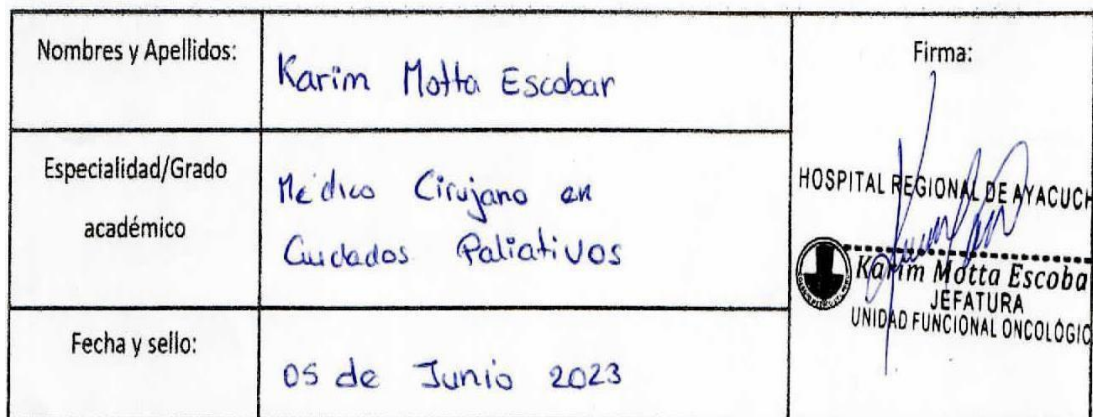 Nombres y Apellidos:
Karim Motta Escobar
Firma:
Especialidad/Grado
académico
Médico Cirujano en
Cuidados Paliativos
HOSPITAL REGIONAL DE AYACUCH
Karim Motta Escoba
JEFATURA
UNIDAD FUNCIONAL ONCOLÓGIC
Fecha y sello:
05 de Junio 2023